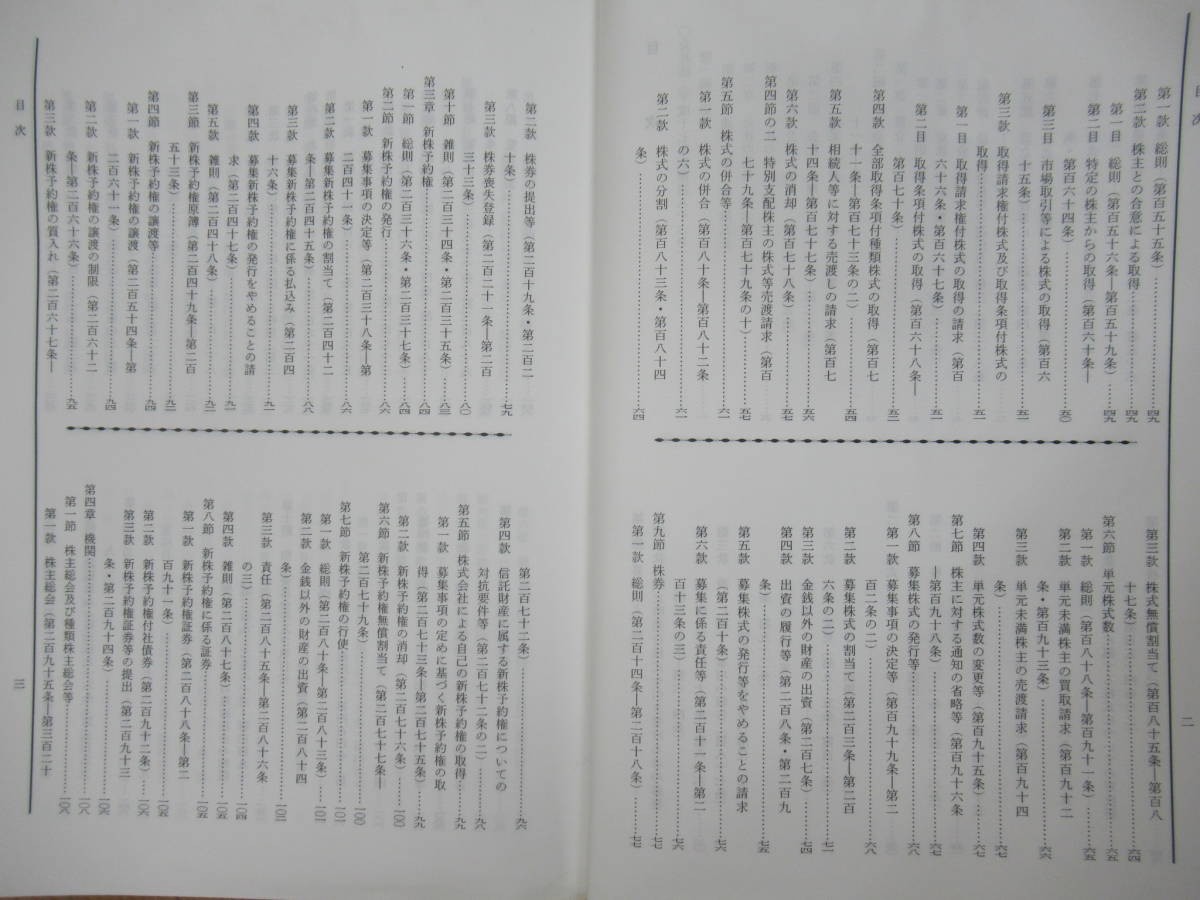 目次
第一款 総則(第百五十五条)……四九
第二款 株主との合意による取得……四九
第一目 総則(第百五十六条―第百五十九条)……四九
第二目 特定の株主からの取得(第百六十条―
第百六十四条)……五〇
第三目 市場取引等による株式の取得(第百六
十五条)……五一
第三款 取得請求権付株式及び取得条項付株式の
取得……五一
第一目 取得請求権付株式の取得の請求(第百
六十六条・第百六十七条)……五一
第二目 取得条項付株式の取得(第百六十八条―
第百七十条)……五二
第四款 全部取得条項付種類株式の取得(第百七
十一条―第百七十三条の二)……五四
第五款 相続人等に対する売渡しの請求(第百七
十四条―第百七十七条)……五六
第六款 株式の消却(第百七十八条)……五七
第四節の二 特別支配株主の株式等売渡請求(第百
七十九条―第百七十九条の十)……五七
第五節 株式の併合等……六一
第一款 株式の併合(第百八十条―第百八十二条
の六)……六一
第二款 株式の分割(第百八十三条・第百八十四
条)……六四
第三款 株式無償割当て(第百八十五条―第百八
十七条)……六四
第六節 単元株式数……六五
第一款 総則(第百八十八条―第百九十一条)……六五
第二款 単元未満株主の買取請求(第百九十二
条・第百九十三条)……六六
第三款 単元未満株主の売渡請求(第百九十四
条)……六七
第四款 単元株式数の変更等(第百九十五条)……六七
第七節 株主に対する通知の省略等(第百九十六条
―第百九十八条)……六七
第八節 募集株式の発行等……六八
第一款 募集事項の決定等(第百九十九条―第二
百二条の二)……六八
第二款 募集株式の割当て(第二百三条―第二百
六条の二)……七一
第三款 金銭以外の財産の出資(第二百七条)……七四
第四款 出資の履行等(第二百八条・第二百九
条)……七五
第五款 募集株式の発行等をやめることの請求
(第二百十条)……七六
第六款 募集に係る責任等(第二百十一条―第二
百十三条の三)……七六
第九節 株券……七七
第一款 総則(第二百十四条―第二百十八条)……七七
二
第二款 株券の提出等(第二百十九条・第二百二
十条)……七九
第三款 株券喪失登録(第二百二十一条―第二百
三十三条)……八〇
第十節 雑則(第二百三十四条・第二百三十五条)……八三
第三章 新株予約権……八四
第一節 総則(第二百三十六条・第二百三十七条)……八四
第二節 新株予約権の発行……八六
第一款 募集事項の決定等(第二百三十八条―第
二百四十一条)……八六
第二款 募集新株予約権の割当て(第二百四十二
条―第二百四十五条)……八八
第三款 募集新株予約権に係る払込み(第二百四
十六条)……九一
第四款 募集新株予約権の発行をやめることの請
求(第二百四十七条)……九一
第五款 雑則(第二百四十八条)……九二
第三節 新株予約権原簿(第二百四十九条―第二百
五十三条)……九二
第四節 新株予約権の譲渡等……九四
第一款 新株予約権の譲渡(第二百五十四条―第
二百六十一条)……九四
第二款 新株予約権の譲渡の制限(第二百六十二
条―第二百六十六条)……九五
第三款 新株予約権の質入れ(第二百六十七条―
第二百七十二条)……九六
第四款 信託財産に属する新株予約権についての
対抗要件等(第二百七十二条の二)……九八
第五節 株式会社による自己の新株予約権の取得……九九
第一款 募集事項の定めに基づく新株予約権の取
得(第二百七十三条―第二百七十五条)……九九
第二款 新株予約権の消却(第二百七十六条)……一〇〇
第六節 新株予約権無償割当て(第二百七十七条―
第二百七十九条)……一〇〇
第七節 新株予約権の行使……一〇一
第一款 総則(第二百八十条―第二百八十三条)……一〇一
第二款 金銭以外の財産の出資(第二百八十四
条)……一〇二
第三款 責任(第二百八十五条―第二百八十六条
の三)……一〇四
第四款 雑則(第二百八十七条)……一〇五
第八節 新株予約権に係る証券……一〇五
第一款 新株予約権証券(第二百八十八条―第二
百九十一条)……一〇五
第二款 新株予約権付社債券(第二百九十二条)……一〇六
第三款 新株予約権証券等の提出(第二百九十三
条・第二百九十四条)……一〇六
第四章 機関……一〇八
第一節 株主総会及び種類株主総会等……一〇八
第一款 株主総会(第二百九十五条―第三百二十
目次
三